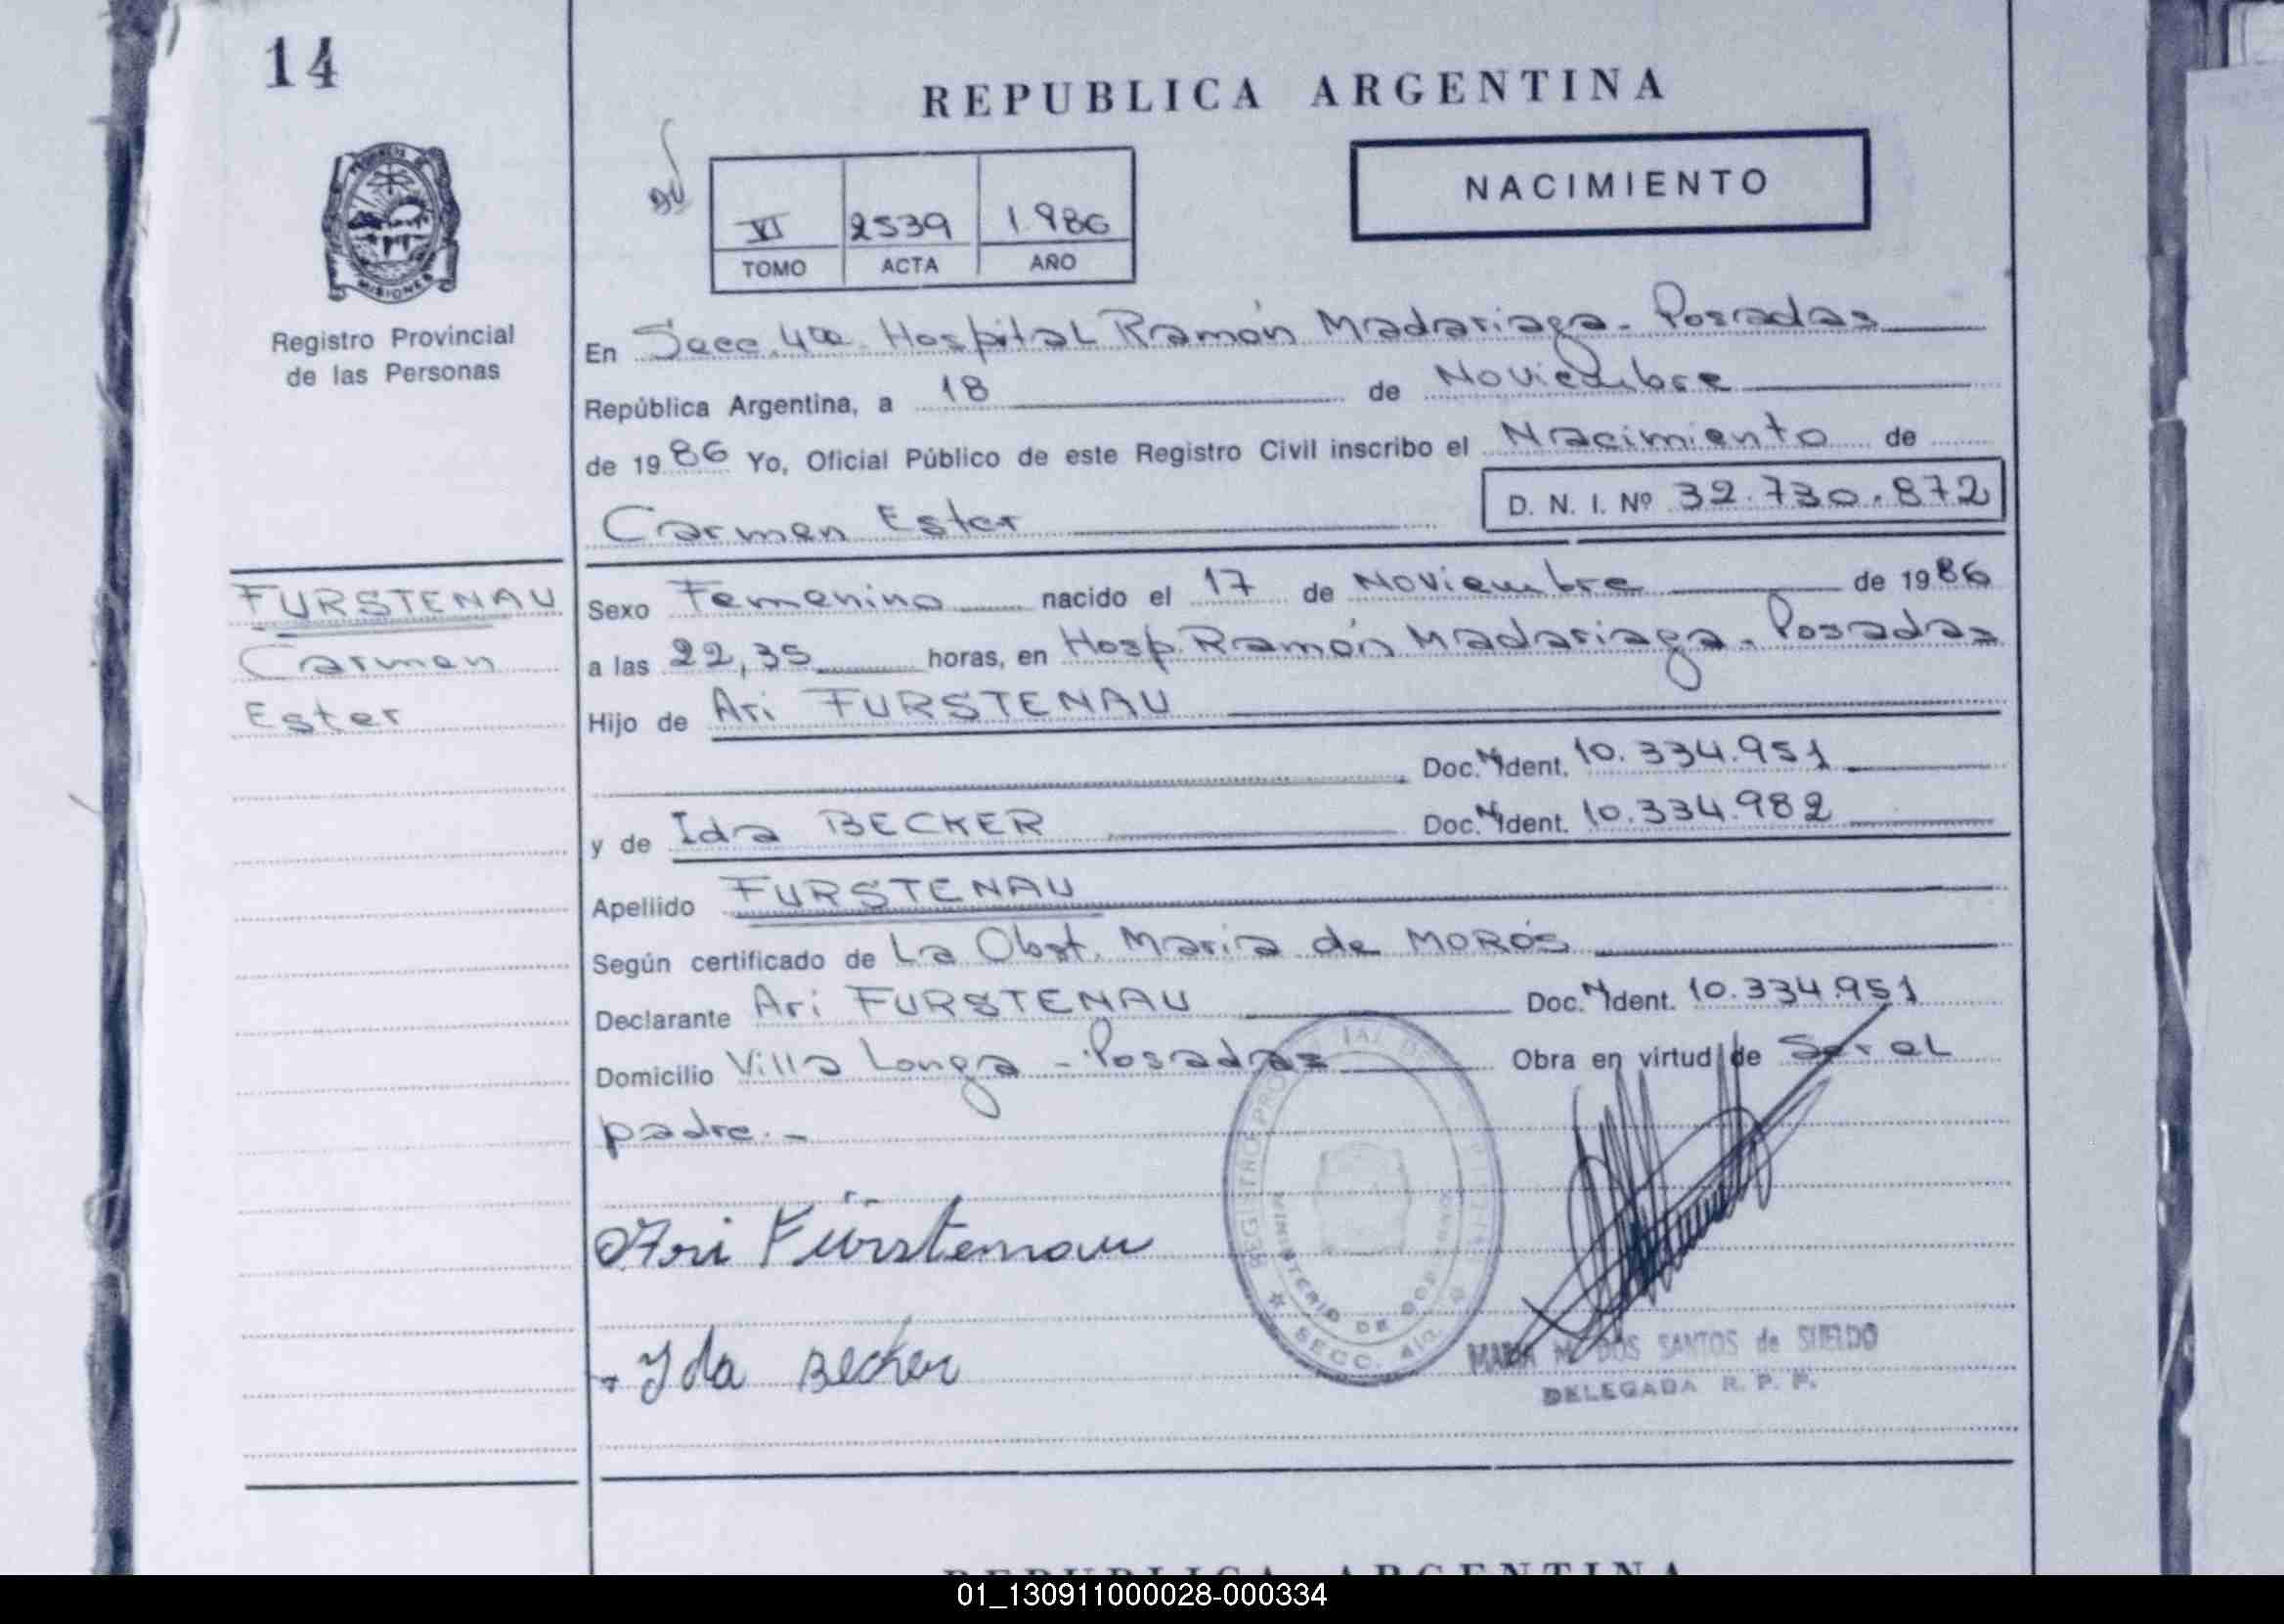 14
REPUBLICA ARGENTINA
NACIMIENTO
VI 2539 1.986
TOMO ACTA AÑO
MISIONES
Registro Provincial
de las Personas
En Secc. 4ta. Hospital Ramón Madariaga - Posadas
República Argentina, a 18 de Noviembre
de 1986 Yo, Oficial Público de este Registro Civil inscribo el Nacimiento de
Carmen Ester D. N. I. Nº 32.730.872
FURSTENAU
Carmen
Ester
Sexo Femenino nacido el 17 de Noviembre de 1986
a las 22,35 horas, en Hosp. Ramón Madariaga - Posadas
Hijo de Ari FURSTENAU
Doc. Ident. 10.334.951
y de Ida BECKER Doc. Ident. 10.334.982
Apellido FURSTENAU
Según certificado de La Obst. Maria de MOROS
Declarante Ari FURSTENAU Doc. Ident. 10.334.951
Domicilio Villa Longa - Posadas Obra en virtud de Ser el
padre. -
Ari Fürstenau
Ida Becker
REGISTRO PROVINCIAL DE
MINISTERIO DE GOBIERNO
SECC. 4ta.
MARIA M. DOS SANTOS de SUELDO
DELEGADA R. P. P.
REPUBLICA ARGENTINA
01_130911000028-000334